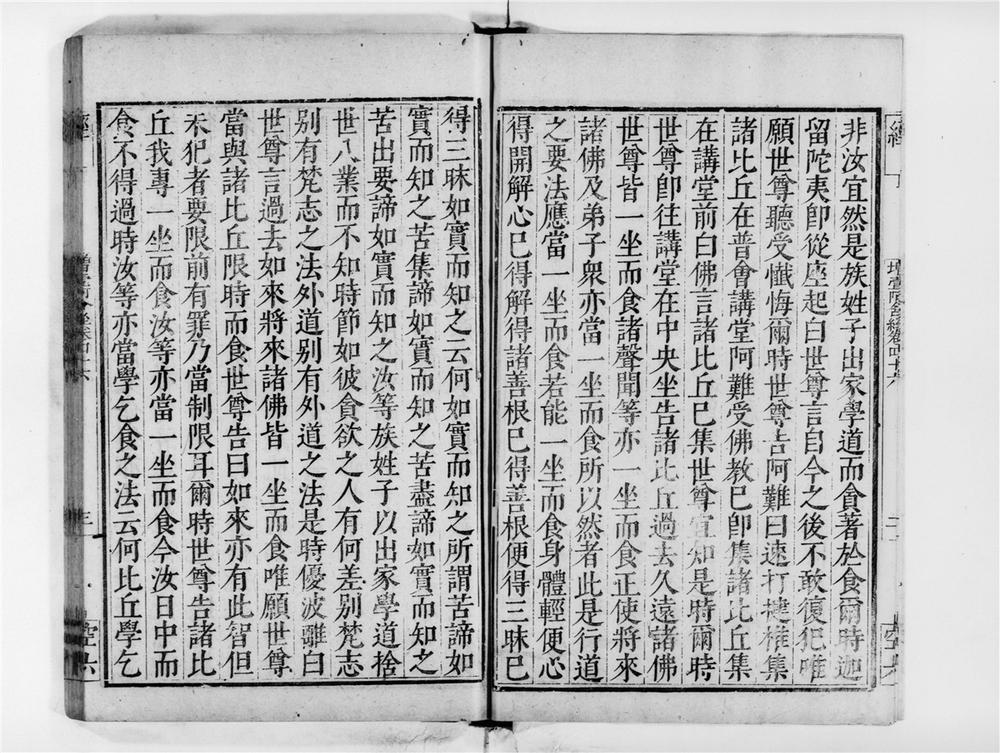 非汝宜然是族姓子出家學道而貪著於食爾時迦
留陀夷卽從座起白世尊言自今之後不敢復犯唯
願世尊聽受懺悔爾時世尊告阿難曰速打揵椎集
諸比丘在普會講堂阿難受佛教已卽集諸比丘集
在講堂前白佛言諸比丘已集世尊宜知是時爾時
世尊卽往講堂在中央坐告諸比丘過去久遠諸佛
世尊皆一坐而食諸聲聞等亦一坐而食正使將來
諸佛及弟子衆亦當一坐而食所以然者此是行道
之要法應當一坐而食若能一坐而食身體輕便心
得開解心已得解得諸善根已得善根便得三昧已
得三昧如實而知之云何如實而知之所謂苦諦如
實而知之苦集諦如實而知之苦盡諦如實而知之
苦出要諦如實而知之汝等族姓子以出家學道捨
世八業而不知時節如彼貪欲之人有何差別梵志
別有梵志之法外道別有外道之法是時優波離白
世尊言過去如來將來諸佛皆一坐而食唯願世尊
當與諸比丘限時而食世尊告曰如來亦有此智但
未犯者要限前有罪乃當制限耳爾時世尊告諸比
丘我專一坐而食汝等亦當一坐而食今汝日中而
食不得過時汝等亦當學乞食之法云何比丘學乞